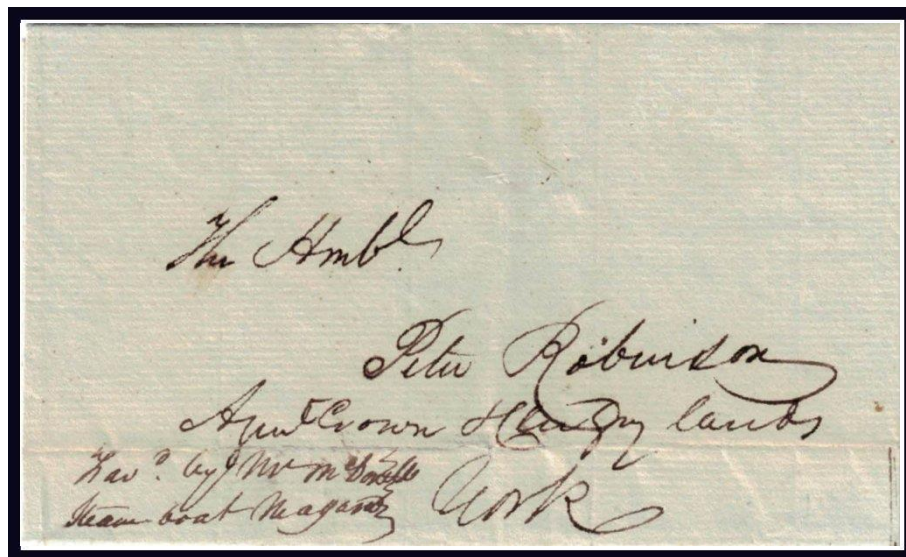 The Honble
Peter Robinson
Agent Crown & Clergy lands
York
Favd. by Mr McDonell
Steam boat Niagara